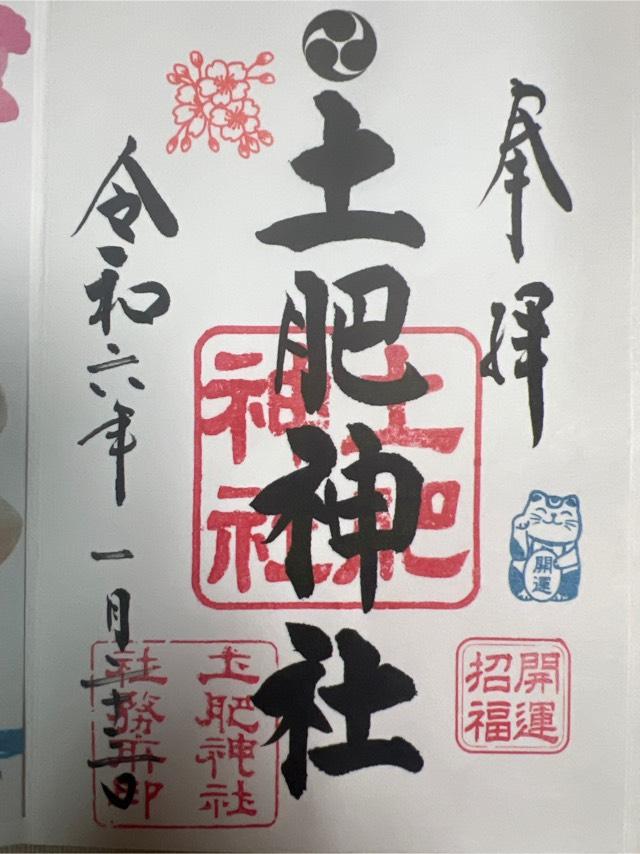 奉拝
開運
開運
招福
土肥神社
土肥
神社
令和六年一月
土肥神社
社務所印